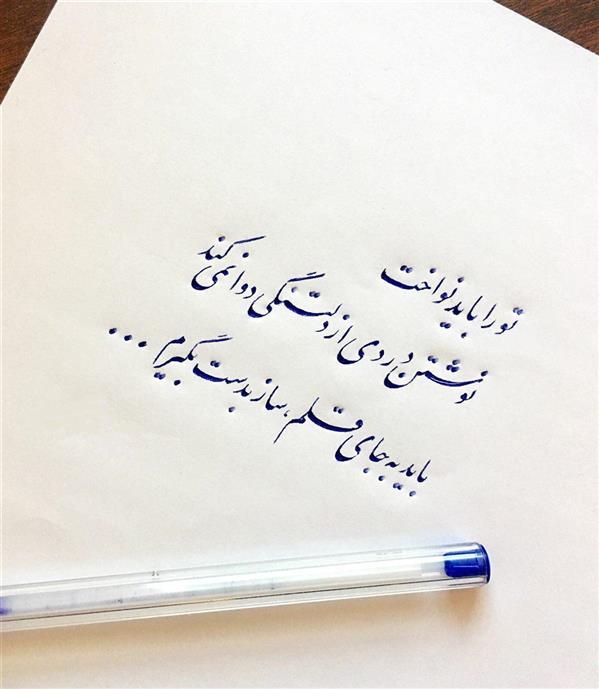 تو را باید نواخت
نوشتن دردی از دلتنگی دوا نمی کند
باید به جای قلم، ساز بدست بگیرم ...